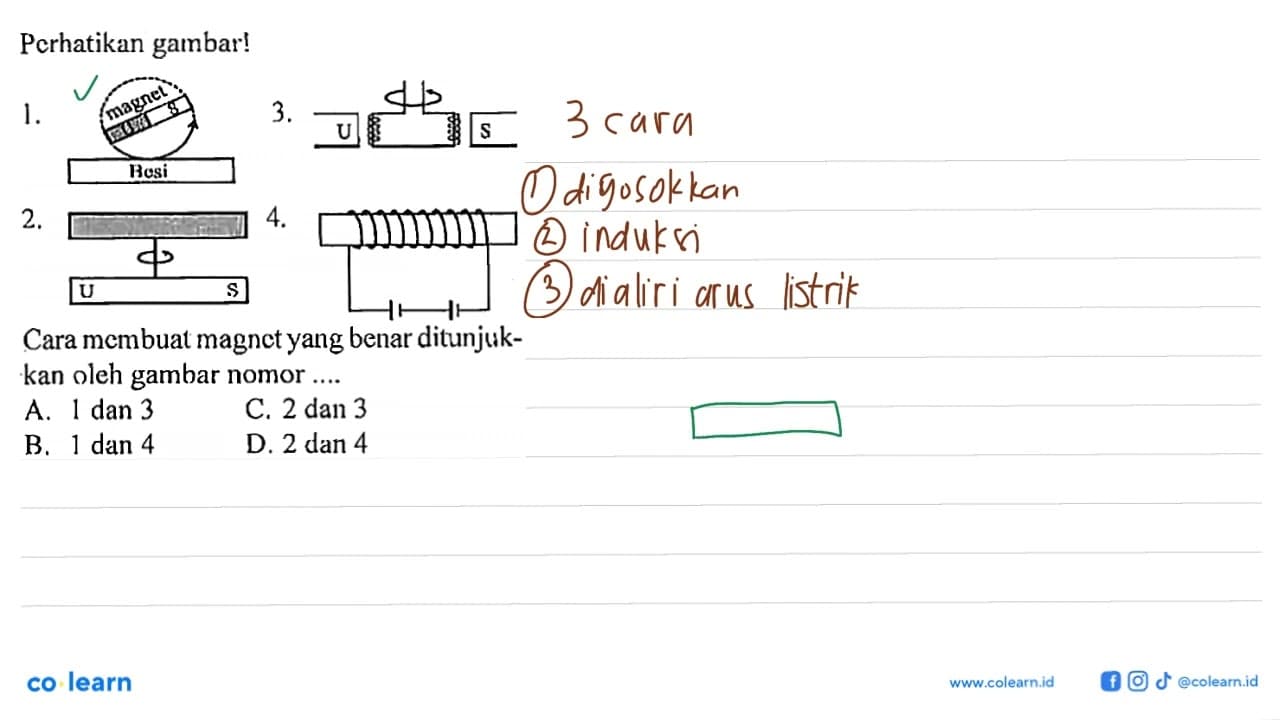 Perhatikan gambar!
1.
magnet
S
Besi
3.
U
S
2.
U
S
4.
3 cara
① digosokkan
② induksi
③ dialiri arus listrik
Cara membuat magnet yang benar ditunjuk-
kan oleh gambar nomor ....
A. 1 dan 3
C. 2 dan 3
B. 1 dan 4
D. 2 dan 4
co learn
www.colearn.id
@colearn.id